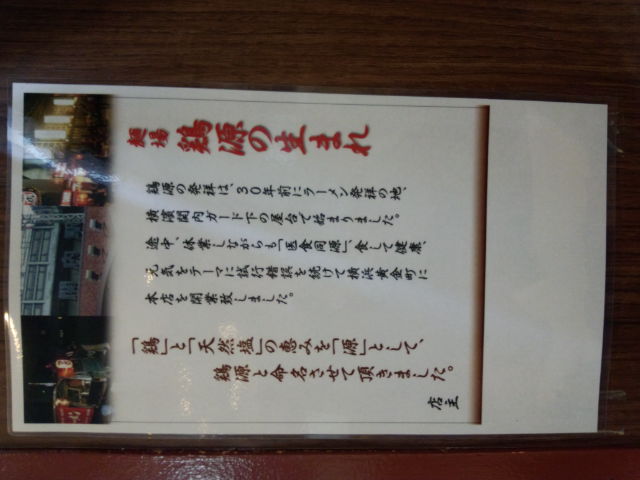 麺場 鶏源の生まれ
鶏源の発祥は、30年前にラーメン発祥の地、
横濱関内ガード下の屋台で始まりました。
途中、休業しながらも「医食同源」、食して健康、
元気をテーマに試行錯誤を続けて横浜黄金町に
本店を開業致しました。
「鶏」と「天然塩」の恵みを「源」として、
鶏源と命名させて頂きました。
店主
関内駅